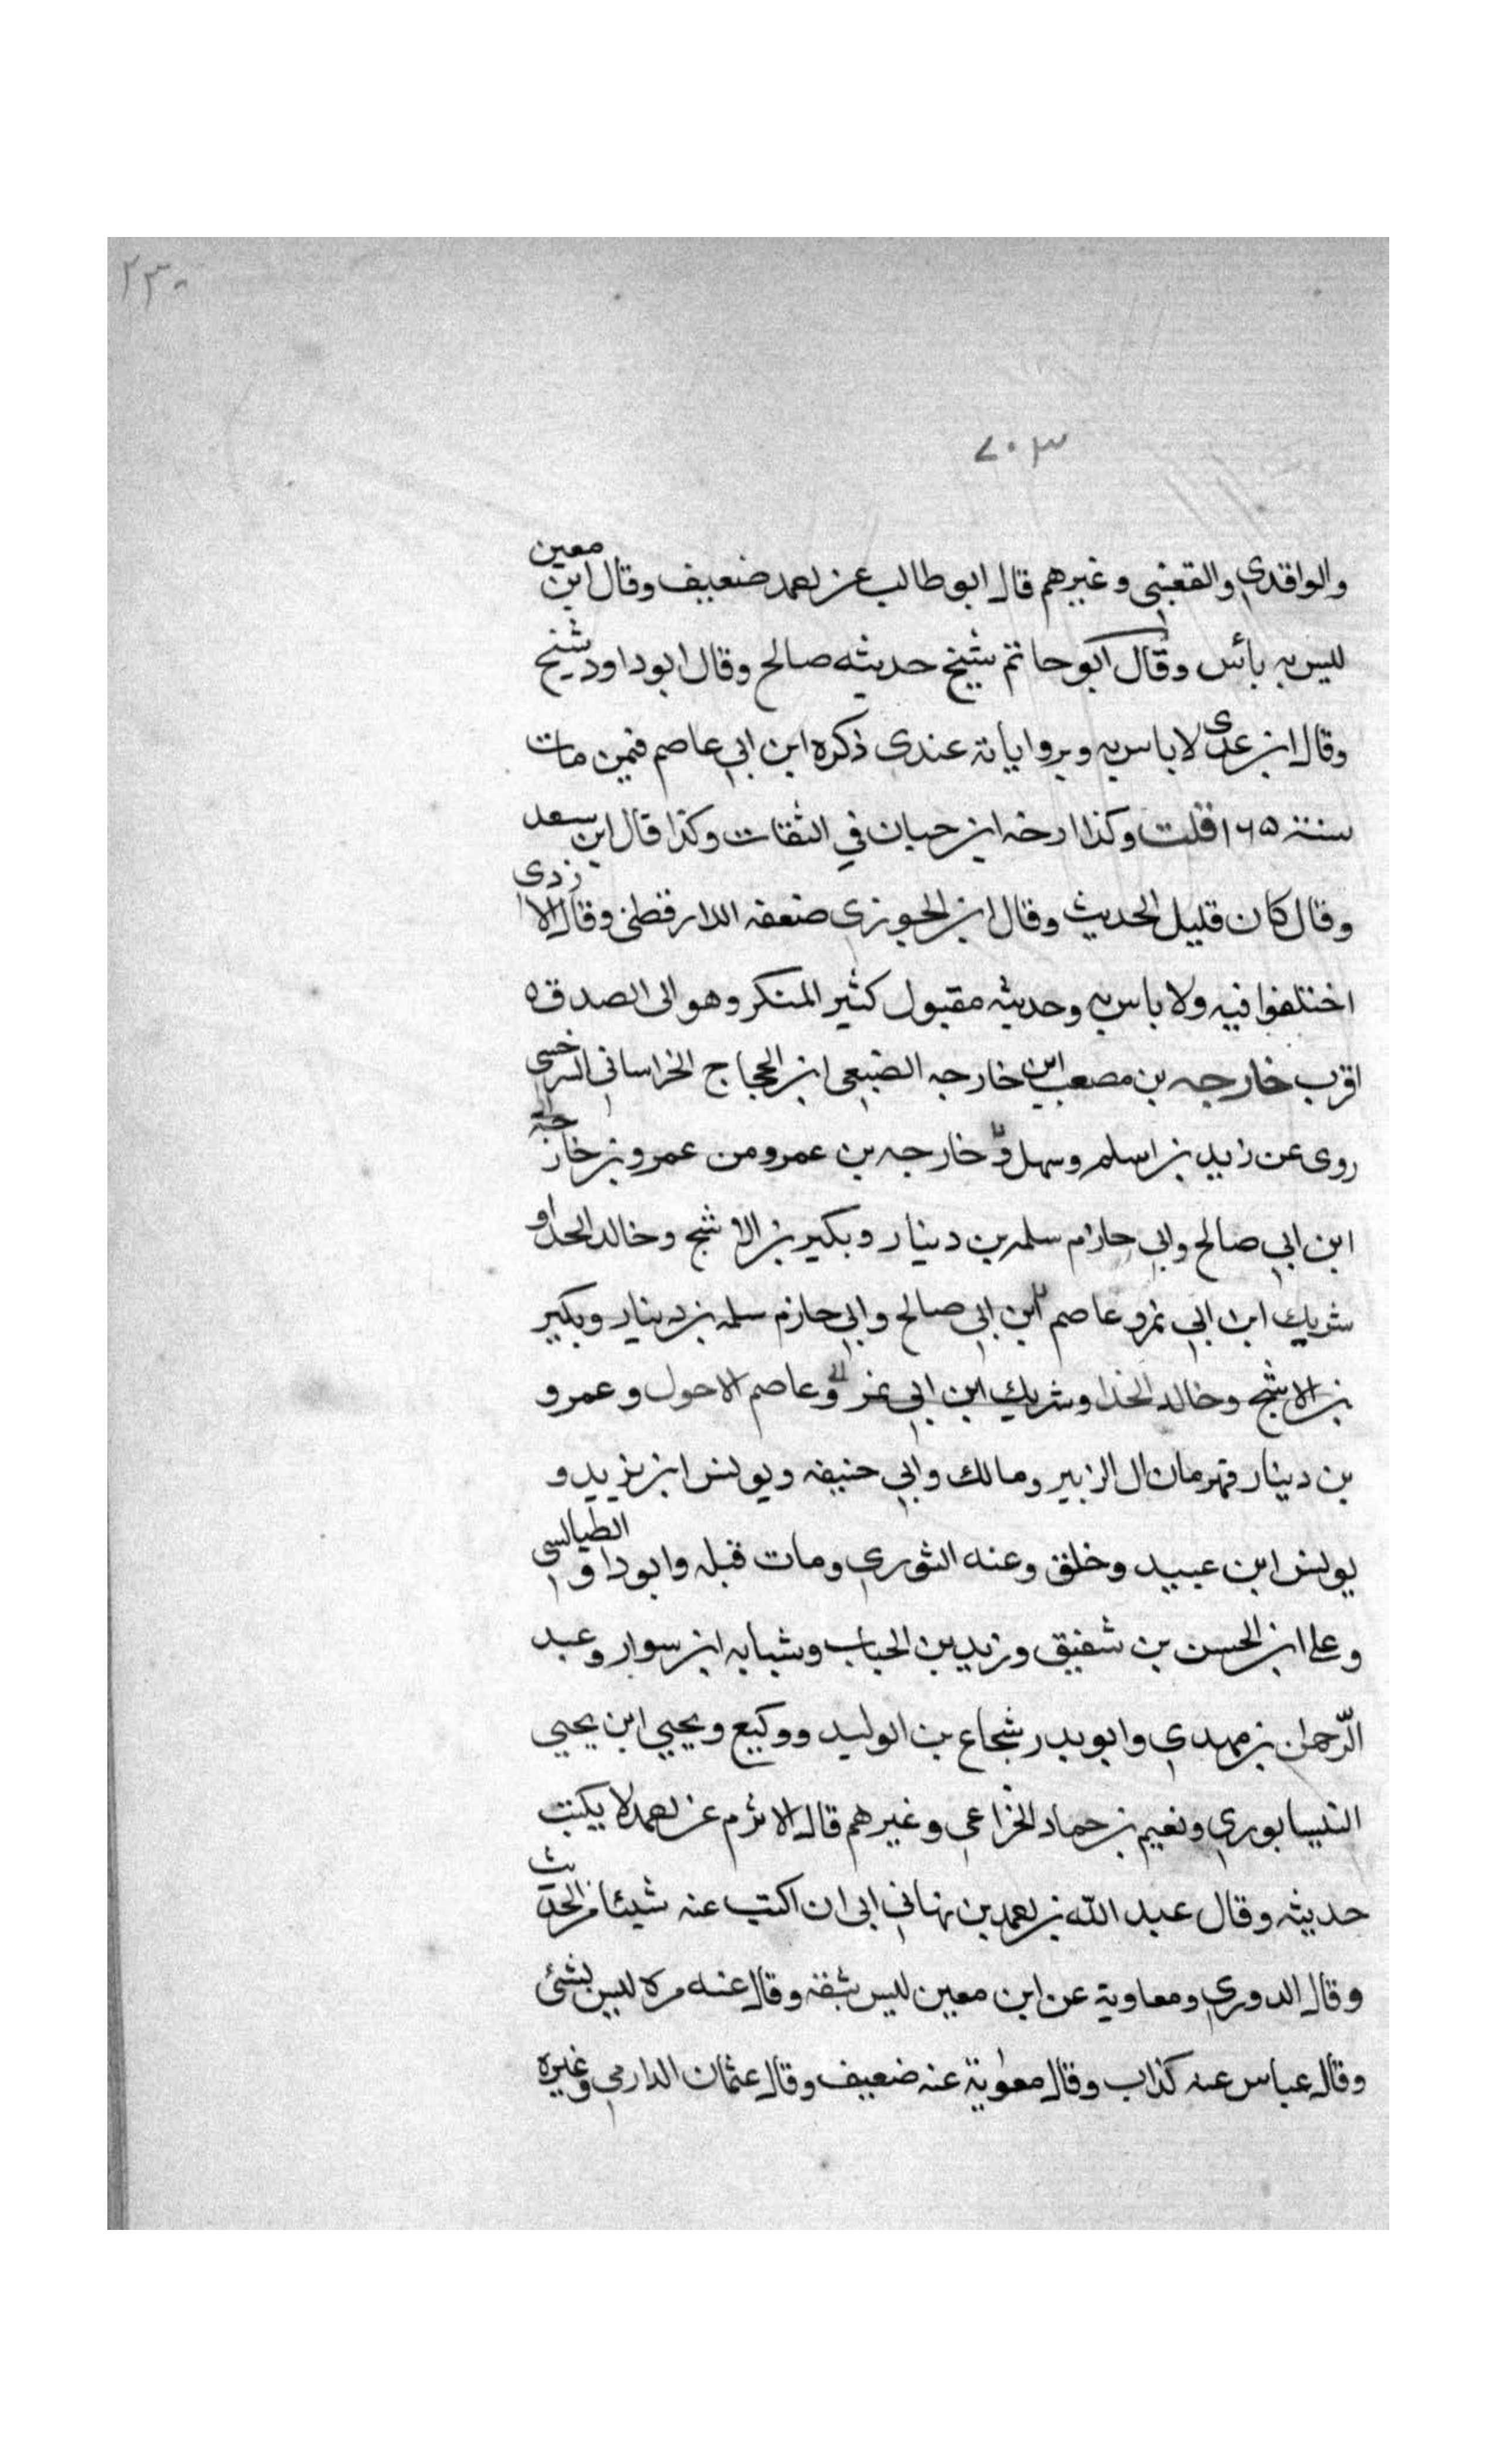 ٢٣٠
٧٠٣
والواقدي والقعنبي وغيرهم قال ابو طالب عن احمد ضعيف وقال ابن معين
ليس به بائس وقال ابو حاتم شيخ حديثه صالح وقال ابو داود شيخ
وقال ابن عدى لا باس به وبرواياته عندى ذكره ابن ابي عاصم فيمن مات
سنة ١٦٥ قلت وكذا ارخه ابن حبان في الثقات وكذا قال ابن سعد
وقال كان قليل الحديث وقال ابن الجوزى ضعفه الدارقطنى وقال الازدى
اختلفوا فيه ولا باس به وحديثه مقبول كثير المنكر وهو الى الصدق ه
اقرب خارجه بن مصعب ابن خارجه الضبعى ابن الحجاج الخراسانى السرخسى
روى عن زيد بن اسلم وسهل و خارجه بن عمرو من عمرو بن خارجة
ابن ابي صالح وابي حازم سلمه بن دينار وبكير بن الاشج وخالد الحذاو
شريك ابن ابي نمرو عاصم ابن ابي صالح وابي حازم سلمه بن دينار وبكير
بن الاشج وخالد الحذا وشريك ابن ابي نمر وعاصم الاحول وعمرو
بن دينار قهرمان ال الزبير ومالك وابي حنيفه ويونس ابن يزيد و
يونس ابن عبيد وخلق وعنه الثوري ومات قبله وابو داو الطيالسي
وعلى ابن الحسن بن شقيق وزيد بن الحباب وشبابه ابن سوار وعبد
الرّحمان بن مهدي وابو بدر شجاع بن الوليد ووكيع ويحيي ابن يحيى
النيسابوري ونعيم بن حماد الخزاعى وغيرهم قال الاثرم عن احمد لا يكتب
حديثه وقال عبد الله بن احمد بن نهانى ابى ان اكتب عنه شيئا من الحديث
وقال الدوري ومعاوية عن ابن معين ليس بثقة وقال عنه مره ليس بشئ
وقال عباس عنه كذاب وقال معوية عنه ضعيف وقال عثمان الدارمي وغيره